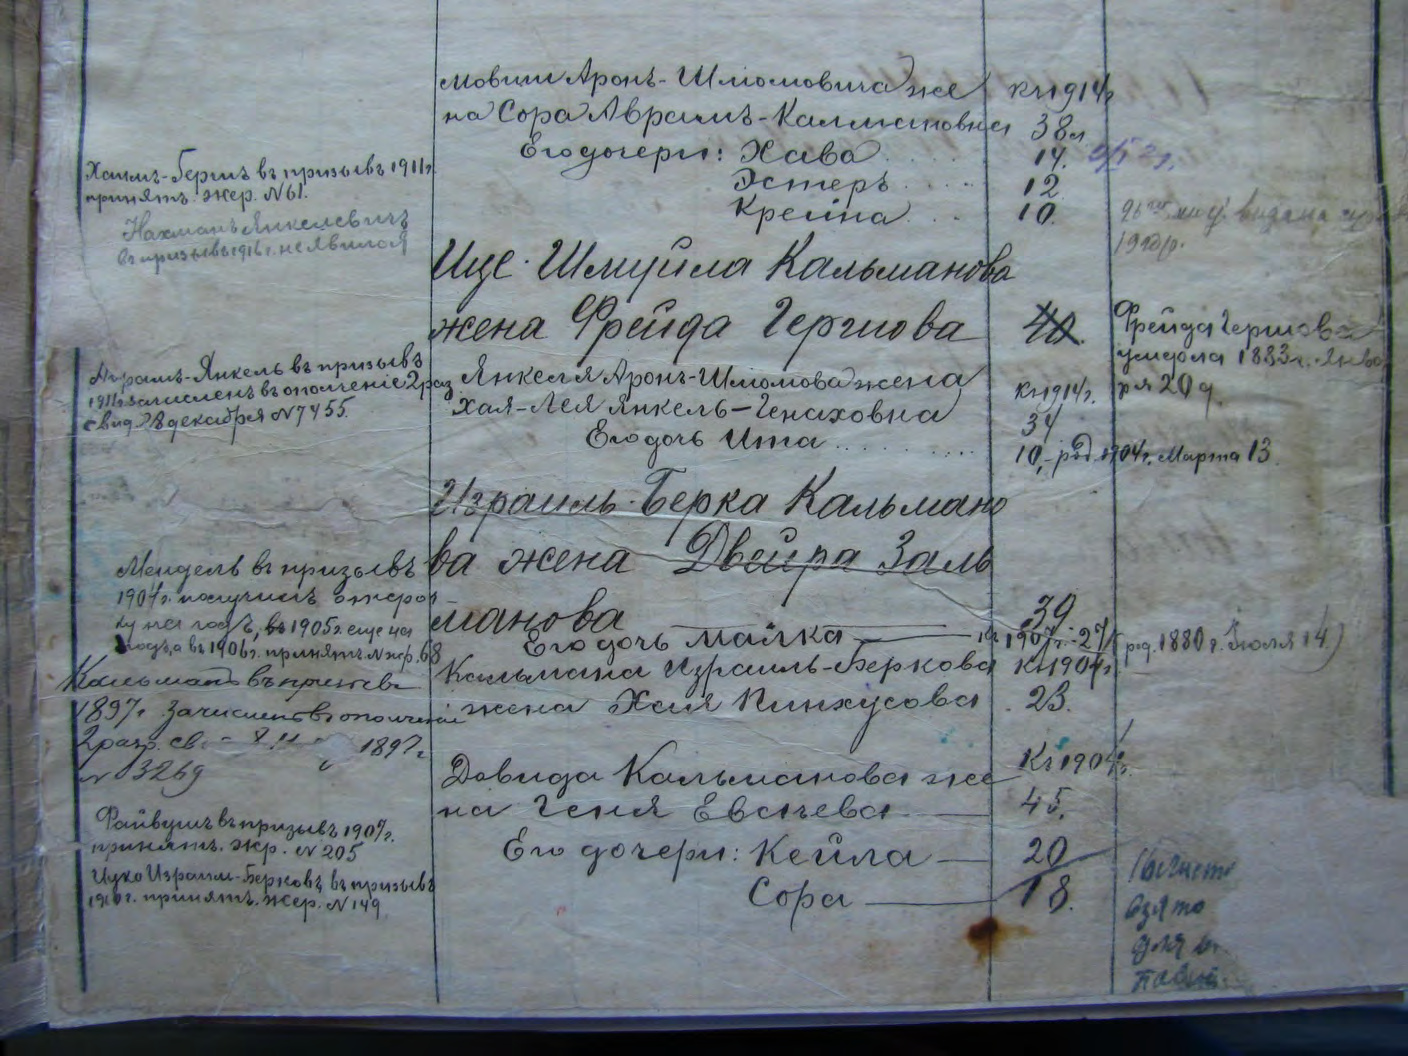 Мовши Аронъ-Шліомовича же
на Сора Аврамъ-Калмановна
Къ 1914 г.
38 л
Его дочери: Хава 14.
Эстеръ 12
Крейна 10.
Хаимъ-Гершъ въ призывъ 1911 г.
принятъ. жер. № 61.
Нахманъ Янкелевичъ
въ призывъ 1916 г. не явился
выдана
Ице-Шмуйла Кальманова
жена Фрейда Гершова 40.
Фрейда Гершова
умерла 1883 г. Янва
ря 20 д.
Абрамъ-Янкель въ призывъ
1911 г. зачисленъ въ ополченіе 2 раз
свид. 28 декабря № 7455.
Янкеля Аронъ-Шліомова жена
Хая-Лея Янкель-Генаховна
Къ 1914 г.
34
Его дочь Ита 10, род. 1904 г. Марта 13.
Израиль-Берка Кальмано
ва жена Двейра Заль
манова 39
Его дочь Малка къ 1907 г. 27 (род. 1880 г. Іюля 14)
Мендель въ призывъ
1904 г. получилъ отсроч
ку на годъ, въ 1905 г. еще на
годъ, а въ 1906 г. принятъ № жер. 68
Кальмана Израиль-Беркова Къ 1904 г.
жена Хая Пинхусова 23.
Кальманъ въ призывъ
1897 г. зачисленъ въ ополчение
2 разр. св. 1897 г.
№ 3269
Довида Кальманова же Къ 1904 г.
на Геня Евсѣева 45.
Его дочери: Кейла 20
Сора 18.
Файвушъ въ призывъ 1907 г.
принятъ. жер. № 205
Ицко Израиль-Берковъ въ призывъ
1910 г. принятъ. жер. № 149
взято
для